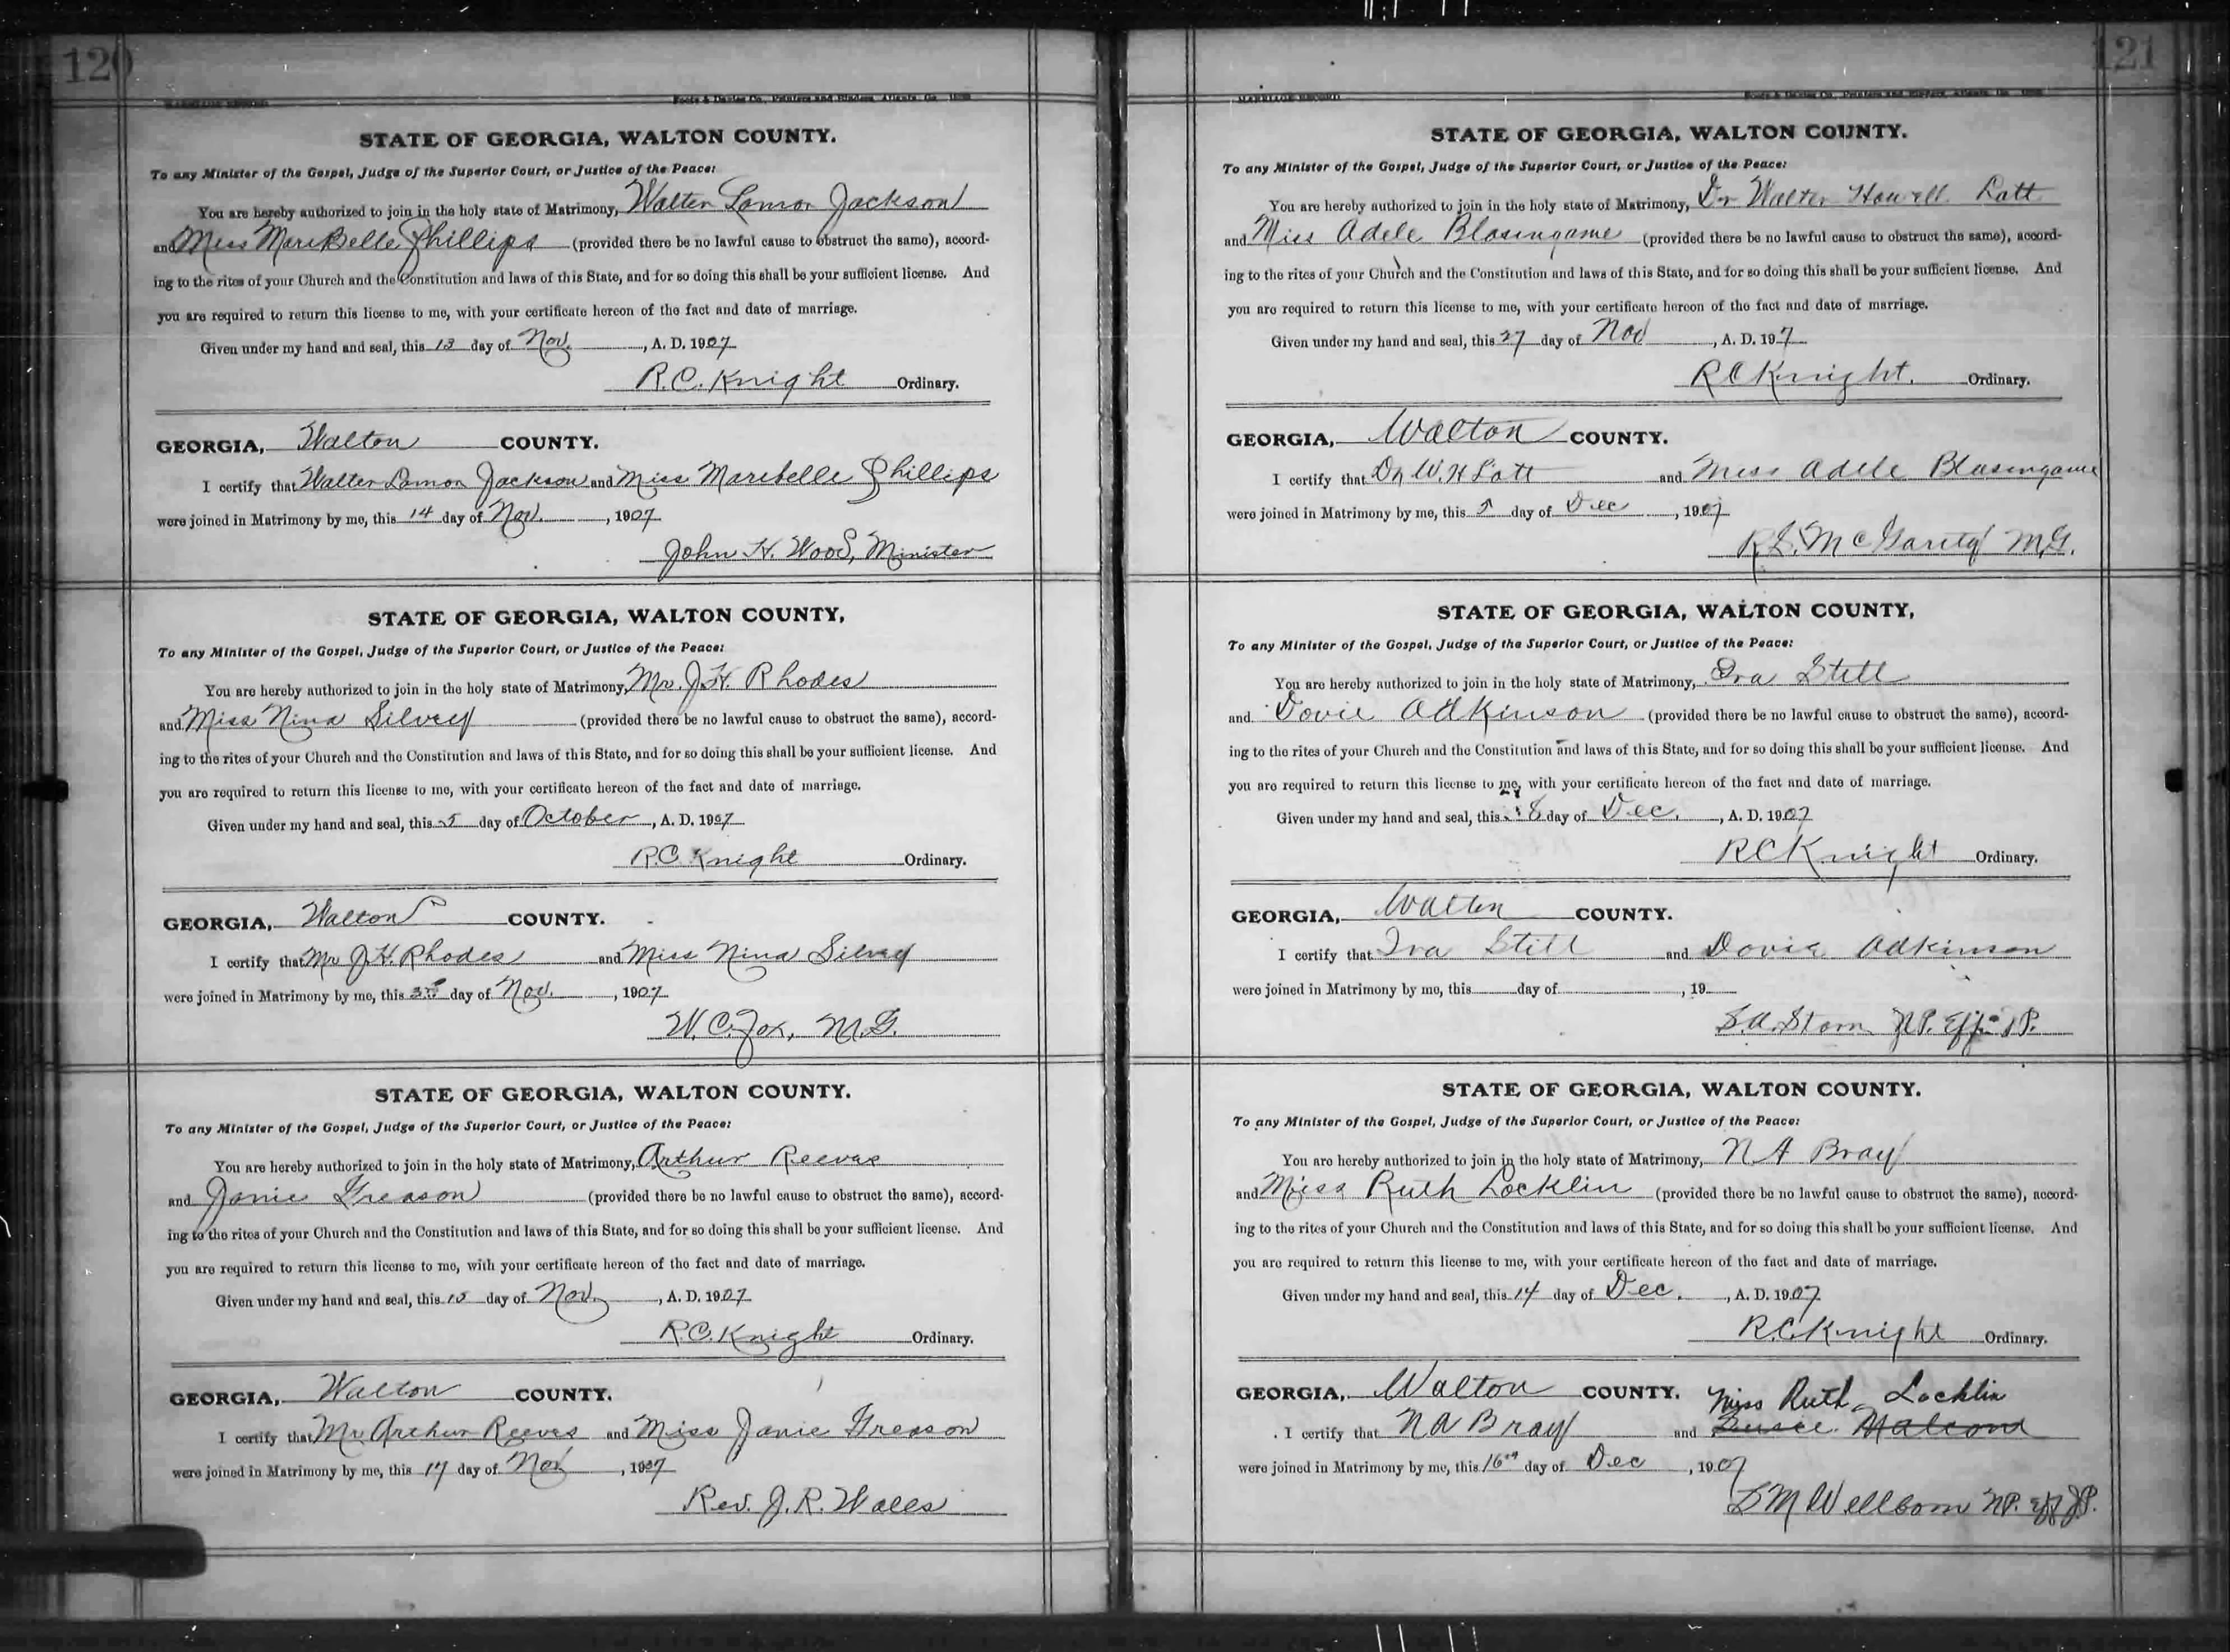 120
MARRIAGE RECORD
Foote & Davies Co., Printers and Binders, Atlanta, Ga.
STATE OF GEORGIA, WALTON COUNTY.
To any Minister of the Gospel, Judge of the Superior Court, or Justice of the Peace:
You are hereby authorized to join in the holy state of Matrimony, Walter Lamar Jackson
and Miss Maribelle Phillips (provided there be no lawful cause to obstruct the same), accord-
ing to the rites of your Church and the Constitution and laws of this State, and for so doing this shall be your sufficient license. And
you are required to return this license to me, with your certificate hereon of the fact and date of marriage.
Given under my hand and seal, this 13 day of Nov. , A. D. 1907
R.C. Knight Ordinary.
GEORGIA, Walton COUNTY.
I certify that Walter Lamar Jackson and Miss Maribelle Phillips
were joined in Matrimony by me, this 14 day of Nov. , 1907
John H. Wood, Minister
STATE OF GEORGIA, WALTON COUNTY,
To any Minister of the Gospel, Judge of the Superior Court, or Justice of the Peace:
You are hereby authorized to join in the holy state of Matrimony, Mr. J.H. Rhodes
and Miss Nina Silvey (provided there be no lawful cause to obstruct the same), accord-
ing to the rites of your Church and the Constitution and laws of this State, and for so doing this shall be your sufficient license. And
you are required to return this license to me, with your certificate hereon of the fact and date of marriage.
Given under my hand and seal, this 5 day of October , A. D. 1907
R.C. Knight Ordinary.
GEORGIA, Walton COUNTY.
I certify that Mr J.H. Rhodes and Miss Nina Silvey
were joined in Matrimony by me, this 3rd day of Nov. , 1907
W. C. Fox, M.G.
STATE OF GEORGIA, WALTON COUNTY.
To any Minister of the Gospel, Judge of the Superior Court, or Justice of the Peace:
You are hereby authorized to join in the holy state of Matrimony, Arthur Reeves
and Janie Greason (provided there be no lawful cause to obstruct the same), accord-
ing to the rites of your Church and the Constitution and laws of this State, and for so doing this shall be your sufficient license. And
you are required to return this license to me, with your certificate hereon of the fact and date of marriage.
Given under my hand and seal, this 15 day of Nov. , A. D. 1907
R.C. Knight Ordinary.
GEORGIA, Walton COUNTY.
I certify that Mr Arthur Reeves and Miss Janie Greason
were joined in Matrimony by me, this 17 day of Nov , 1907
Rev. J. R. Wales
121
MARRIAGE RECORD
Foote & Davies Co., Printers and Binders, Atlanta, Ga.
STATE OF GEORGIA, WALTON COUNTY.
To any Minister of the Gospel, Judge of the Superior Court, or Justice of the Peace:
You are hereby authorized to join in the holy state of Matrimony, Dr Walter Howell Lott
and Miss Adele Blasingame (provided there be no lawful cause to obstruct the same), accord-
ing to the rites of your Church and the Constitution and laws of this State, and for so doing this shall be your sufficient license. And
you are required to return this license to me, with your certificate hereon of the fact and date of marriage.
Given under my hand and seal, this 27 day of Nov , A. D. 197
R C Knight. Ordinary.
GEORGIA, Walton COUNTY.
I certify that Dr W. H Lott and Miss Adele Blasingame
were joined in Matrimony by me, this 5 day of Dec , 1907
R.L. McGarity M.G.
STATE OF GEORGIA, WALTON COUNTY,
To any Minister of the Gospel, Judge of the Superior Court, or Justice of the Peace:
You are hereby authorized to join in the holy state of Matrimony, Ira Still
and Dovie Adkinson (provided there be no lawful cause to obstruct the same), accord-
ing to the rites of your Church and the Constitution and laws of this State, and for so doing this shall be your sufficient license. And
you are required to return this license to me, with your certificate hereon of the fact and date of marriage.
Given under my hand and seal, this 8 day of Dec. , A. D. 1907
R C Knight Ordinary.
GEORGIA, Walton COUNTY.
I certify that Ira Still and Dovie Adkinson
were joined in Matrimony by me, this day of , 19
S.A. Storn N.P. Exff J.P.
STATE OF GEORGIA, WALTON COUNTY.
To any Minister of the Gospel, Judge of the Superior Court, or Justice of the Peace:
You are hereby authorized to join in the holy state of Matrimony, N A Bray
and Miss Ruth Locklin (provided there be no lawful cause to obstruct the same), accord-
ing to the rites of your Church and the Constitution and laws of this State, and for so doing this shall be your sufficient license. And
you are required to return this license to me, with your certificate hereon of the fact and date of marriage.
Given under my hand and seal, this 14 day of Dec. , A. D. 1907
R.C. Knight Ordinary.
GEORGIA, Walton COUNTY. Miss Ruth Locklin
I certify that N A Bray and Malcom
were joined in Matrimony by me, this 16th day of Dec , 1907
D M Wellborn N.P. Exff J.P.